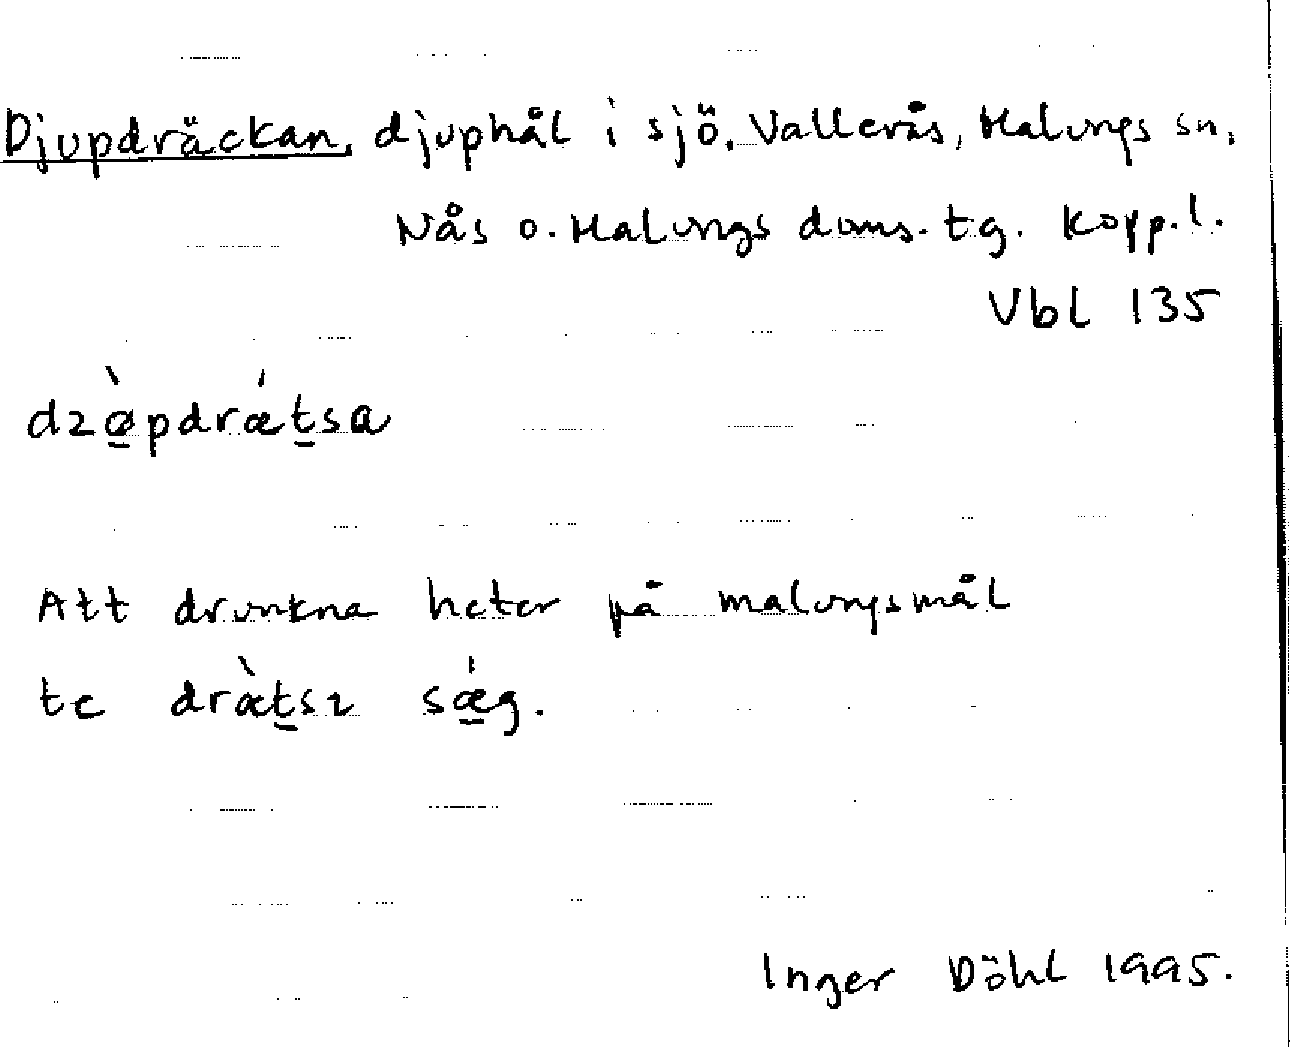 Djupdräckan, djuphål i sjö. Vallerås, Malungs sn,
Nås o. Malungs doms. tg. Kopp. l.
Vbl 135
dzø̀pdrǽtsa
Att drunkna heter på malungsmål
te dræ̀tsɩ sǽg.
Inger Döhl 1995.